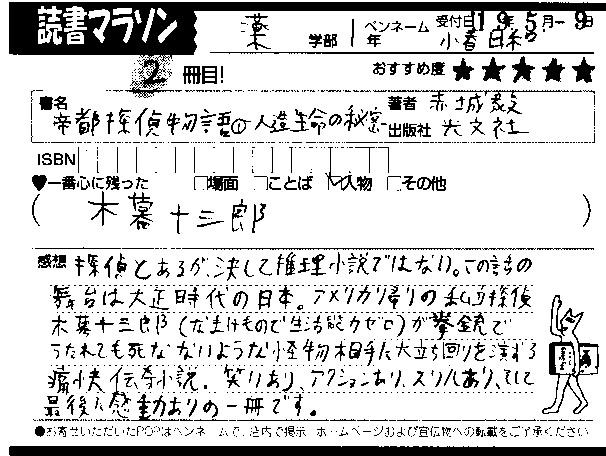 読書マラソン 薬 学部 1年 ペンネーム 小春日和 受付日 19年5月9日
2 冊目! おすすめ度 ★★★★★
書名 帝都探偵物語① 人造生命の秘密 著者 赤城毅
出版社 光文社
ISBN
♥一番心に残った □場面 □ことば ☑人物 □その他
( 木暮十三郎 )
感想 探偵とあるが、決して推理小説ではない。この話の
舞台は大正時代の日本。アメリカ帰りの私立探偵
木暮十三郎(なまけもので生活能力ゼロ)が拳銃で
うたれても死なないような怪物相手に大立ち回りを演じる
痛快伝奇小説。笑いあり、アクションあり、スリルあり、そして
最後に感動ありの一冊です。
●お寄せいただいたPOPはペンネームで、店内で掲示、ホームページおよび宣伝物への転載をご了承ください